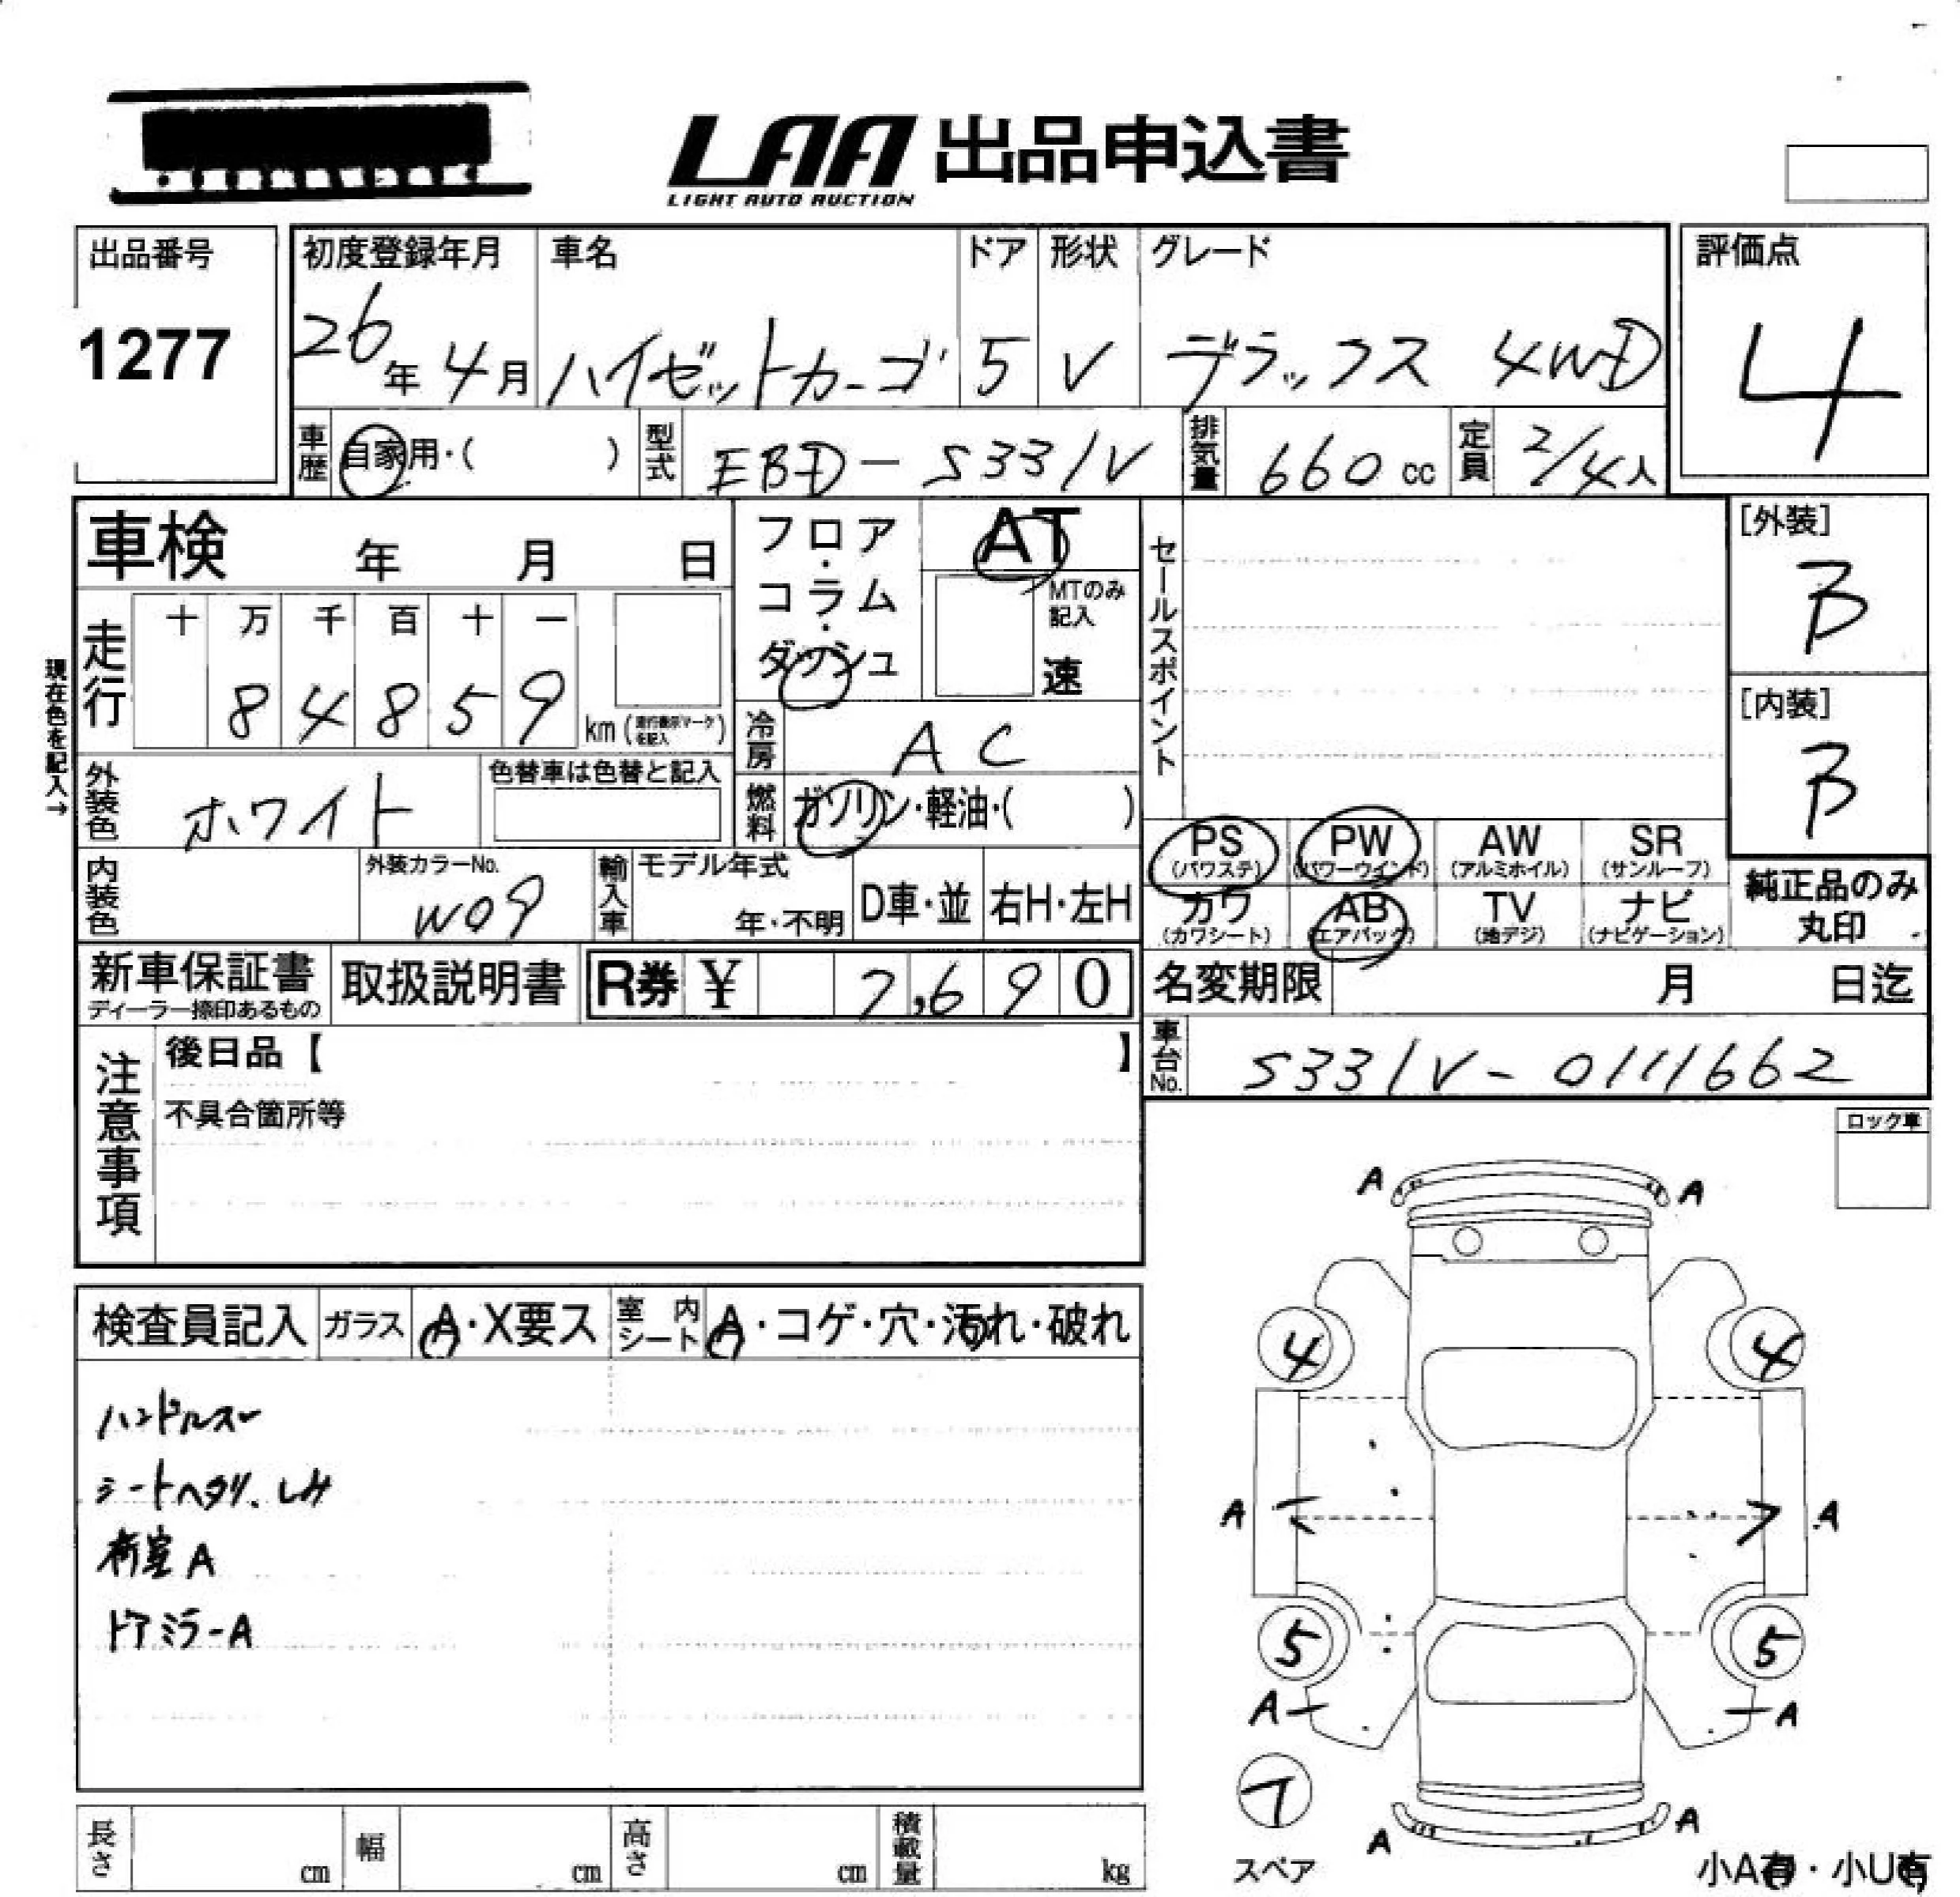 LAA 出品申込書
LIGHT AUTO AUCTION
出品番号
1277
初度登録年月
26年 4月
車名
ハイゼットカーゴ
ドア
5
形状
V
グレード
デラックス 4WD
評価点
4
車歴 自家用・( )
型式 EBD-S331V
排気量 660 cc
定員 2/4人
車検 年 月 日
フロア・コラム・ダッシュ
AT
MTのみ記入
速
セールスポイント
[外装]
B
[内装]
B
現在色を記入→
走行 十 万 千 百 十 一
8 4 8 5 9 km (走行表示マークを記入)
冷房 AC
外装色 ホワイト
色替車は色替と記入
燃料 ガソリン・軽油・( )
内装色
外装カラーNo.
W09
輸入車
モデル年式
年・不明
D車・並
右H・左H
PS (パワステ)
PW (パワーウインド)
AW (アルミホイル)
SR (サンルーフ)
カワ (カワシート)
AB (エアバック)
TV (地デジ)
ナビ (ナビゲーション)
純正品のみ
丸印
新車保証書
ディーラー捺印あるもの
取扱説明書
R券 ¥ 7,690
名変期限 月 日迄
車台No. S331V-0111662
注意事項
後日品【 】
不具合箇所等
ロック車
検査員記入
ガラス A・X要ス
室内シート A・コゲ・穴・汚れ・破れ
ハンドルスレ
シートヘタリ、LH
荷室A
ドアミラーA
A A
4 4
A A
5 5
A A
スペア
A A
小A有・小U有
長さ cm
幅 cm
高さ cm
積載量 kg